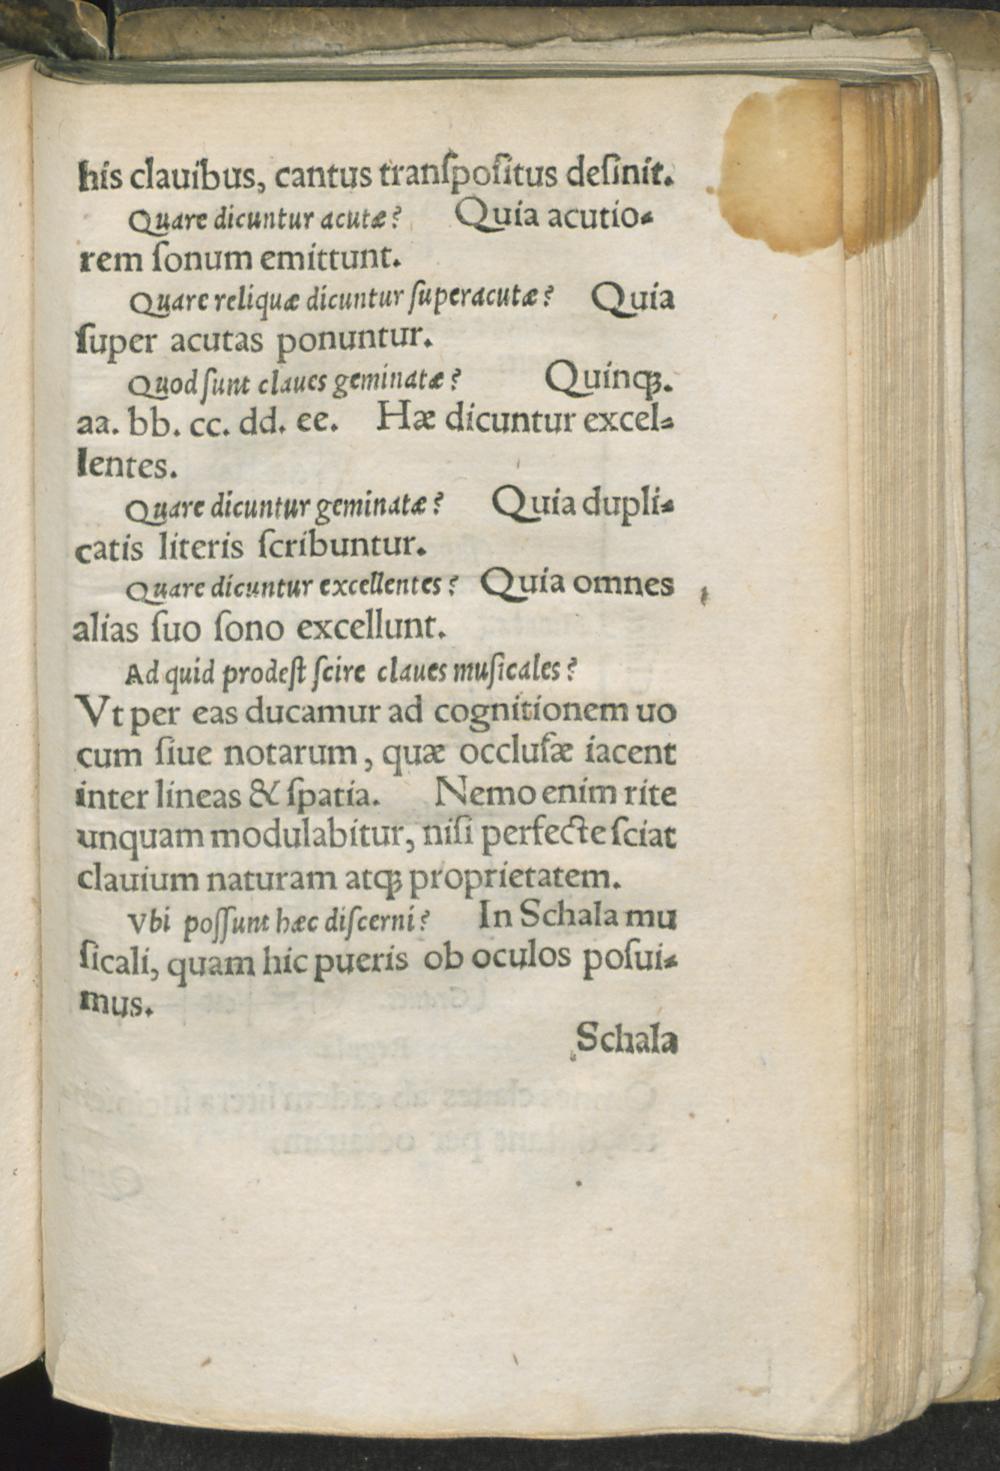 his clauibus, cantus tranſpoſitus deſinit.
Quare dicuntur acutæ? Quia acutio⸗
rem ſonum emittunt.
Quare reliquæ dicuntur ſuperacutæ? Quia
ſuper acutas ponuntur.
Quod ſunt claues geminatæ? Quinqꝫ.
aa. bb. cc. dd. ee. Hæ dicuntur excel⸗
lentes.
Quare dicuntur geminatæ? Quia dupli⸗
catis literis ſcribuntur.
Quare dicuntur excellentes? Quia omnes
alias ſuo ſono excellunt.
Ad quid prodeſt ſcire claues muſicales?
Vt per eas ducamur ad cognitionem uo
cum ſiue notarum, quæ occluſæ iacent
inter lineas & ſpatia. Nemo enim rite
unquam modulabitur, niſi perfecte ſciat
clauium naturam atqꝫ proprietatem.
Vbi poſſunt hæc diſcerni? In Schala mu
ſicali, quam hic pueris ob oculos poſui⸗
mus.
Schala